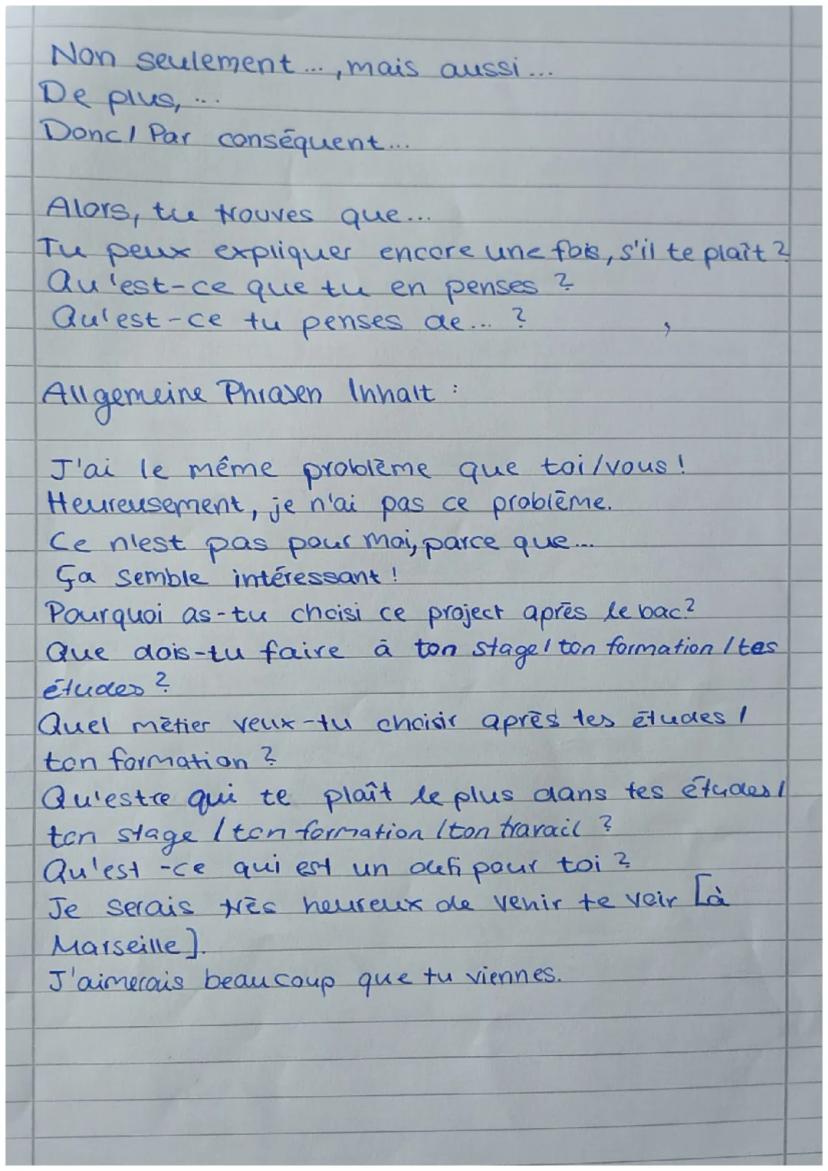 Non seulement ..., mais aussi ...
De plus, ...
Donc / Par conséquent...
Alors, tu trouves que...
Tu peux expliquer encore une fois, s'il te plaît ?
Qu'est-ce que tu en penses ?
Qu'est-ce tu penses de ... ?
Allgemeine Phrasen Inhalt :
J'ai le même problème que toi/vous !
Heureusement, je n'ai pas ce problème.
Ce n'est pas pour moi, parce que...
Ça semble intéressant !
Pourquoi as-tu choisi ce project après le bac?
Que dois-tu faire à ton stage / ton formation / tes
études ?
Quel mètier veux-tu choisir après tes études /
ton formation ?
Qu'estce qui te plaît le plus dans tes études /
ton stage / ton formation / ton travail ?
Qu'est-ce qui est un defi pour toi ?
Je serais très heureux de venir te voir [à
Marseille].
J'aimerais beaucoup que tu viennes.